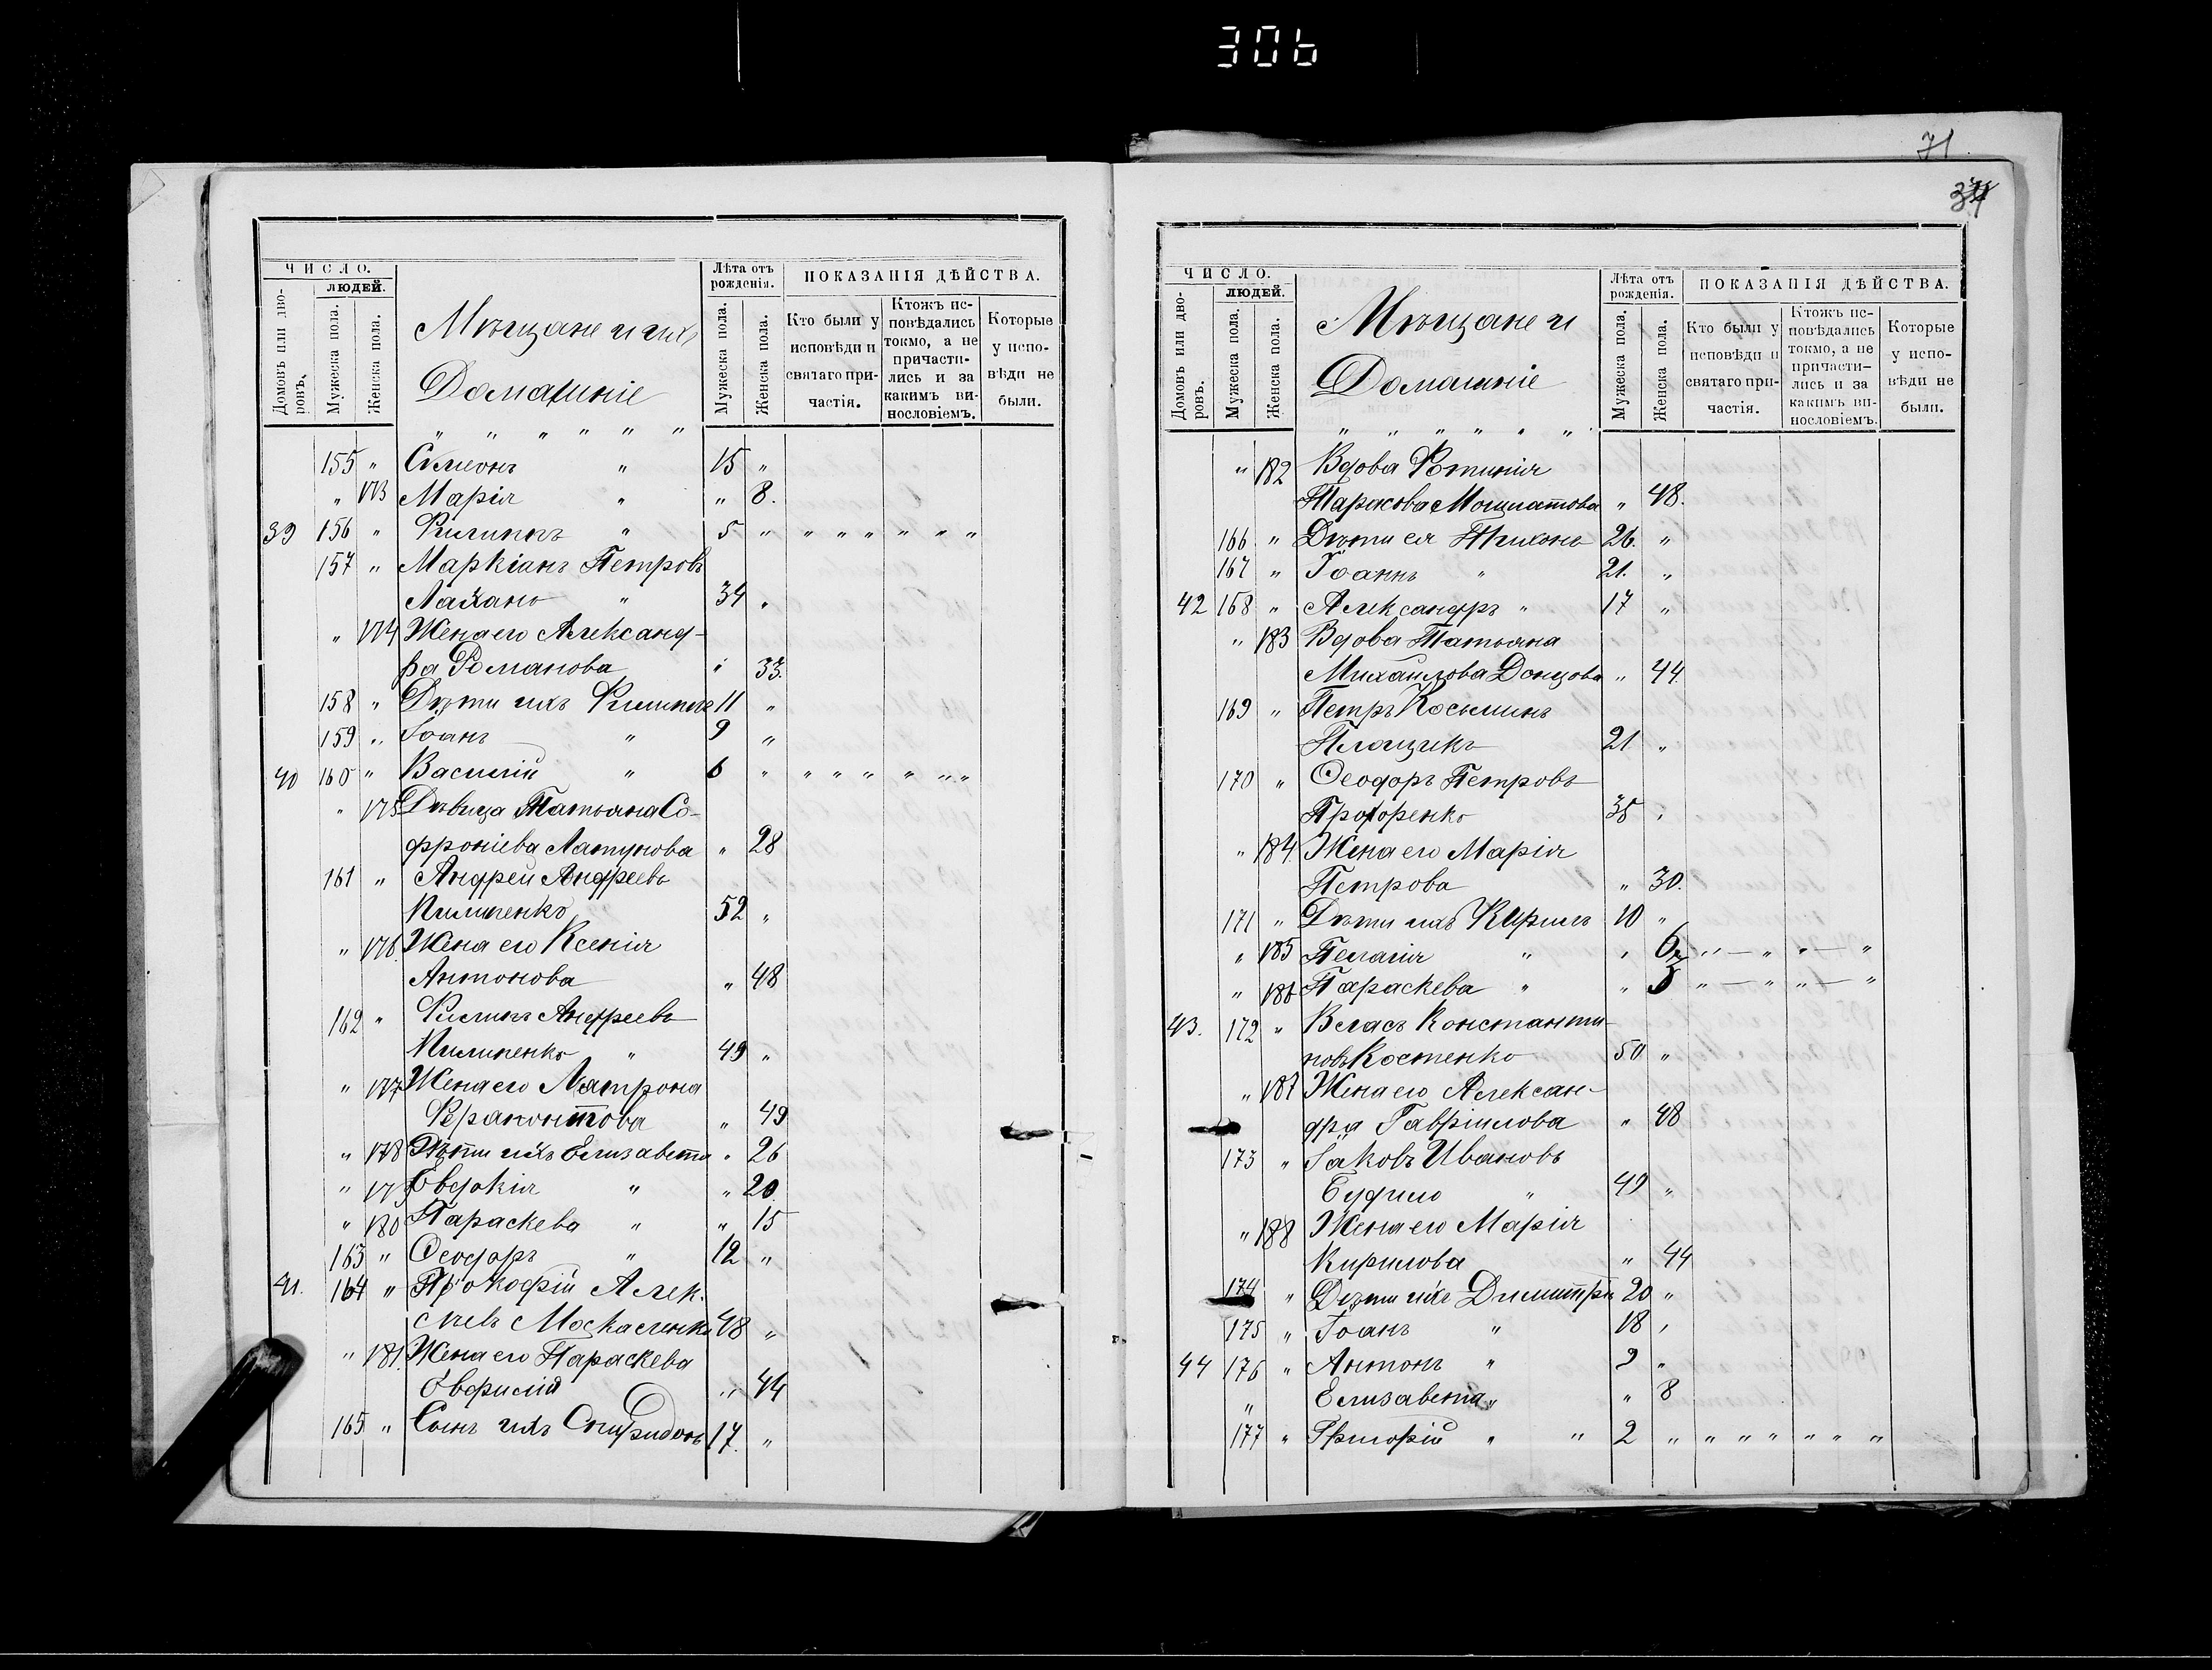 306
71
ЧИСЛО.
людей.
Домовъ или дворовъ.
Мужеска пола.
Женска пола.
Мѣщане и ихъ
Домашніе
Лѣта отъ рожденія.
Мужеска пола.
Женска пола.
ПОКАЗАНІЯ ДѢЙСТВА.
Кто были у исповѣди и святаго причастія.
Ктожъ исповѣдались токмо, а не причастились и за какимъ винословіемъ.
Которые у исповѣди не были.
" " " " " "
155 " Симеонъ " 15 "
" 173 Марія " " 8.
39 156 " Филиппъ " 5 " " " " " " "
157 " Маркіанъ Петровъ
Лахано " 34 "
" 174 Жена его Александ-
ра Романова " 33.
158 " Дѣти ихъ Филиппъ 11 "
159 " Іоанъ " 9 "
40 160 " Василій " 6 " " " " " " "
" 175 Дѣвица Татьяна Со-
фроніева Латунова " 28
161 " Андрей Андреевъ
Пилипенко 52 "
" 176. Жена его Ксенія
Антонова " 48
162 " Филипъ Андреевъ
Пилипенко " 49 "
" 177 Жена его Матрона
Ферапонтова " 49
" 178 Дѣти ихъ Елизавета " 26
" 179 Евдокія " " 20.
" 180 Параскева " " 15
163 " Ѳеодоръ " 12 "
41. 164 " Прокофій Алек-
сѣевъ Москаленко 48 "
" 181. Жена его Параскева
" 44
165 " Сынъ ихъ Спиридонъ 17. "
ЧИСЛО.
людей.
Домовъ или дворовъ.
Мужеска пола.
Женска пола.
Мѣщане и
Домашніе
Лѣта отъ рожденія.
Мужеска пола.
Женска пола.
ПОКАЗАНІЯ ДѢЙСТВА.
Кто были у исповѣди и святаго причастія.
Ктожъ исповѣдались токмо, а не причастились и за какимъ винословіемъ.
Которые у исповѣди не были.
" " " " " "
" 182 Вдова Фотинія
Тарасова " 48.
166 " Дѣти ея Тихонъ 26. "
167 " Іоаннъ " 21. "
42 168 " Александръ " 17 "
" 183 Вдова Татьяна
Михайлова Донцова " 44.
169 " Петръ Косьминъ
Плащикъ 21 "
170 " Ѳеодоръ Петровъ
Прохоренко 35 "
" 184. Жена его Марія
Петрова " 30.
171 " Дѣти ихъ Кирилъ 10 "
" 185 Пелагія " " 6 " — " " — "
" 186 Параскева " " 3 " — " " — "
43. 172 " Власъ Константи-
новъ Костенко 50 "
" 187 Жена его Алексан-
дра Гавріилова " 48
173 " Іаковъ Ивановъ
" 49 "
" 188 Жена его Марія
Кирилова " 44
174 " Дѣти ихъ Димитрій 20 "
175 " Іоанъ " 18 "
44 176 " Антонъ " 2 "
" Елизавета " " 8
177 " Григорій " " 2 " " " " " " "